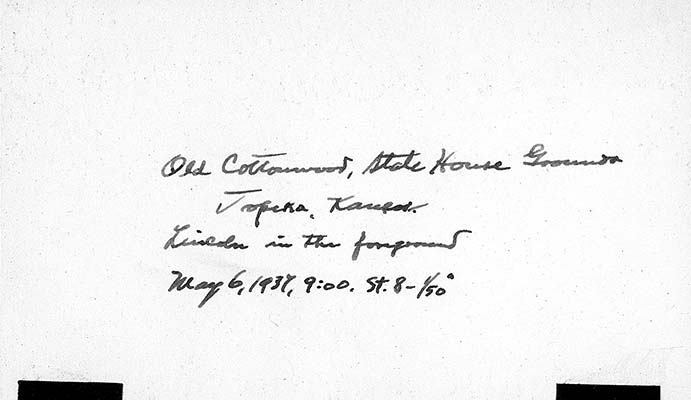 Old Cottonwood, State House Grounds
Topeka, Kansas.
Lincoln in the foreground
May 6, 1937, 9:00. St. 8 - 1/50"